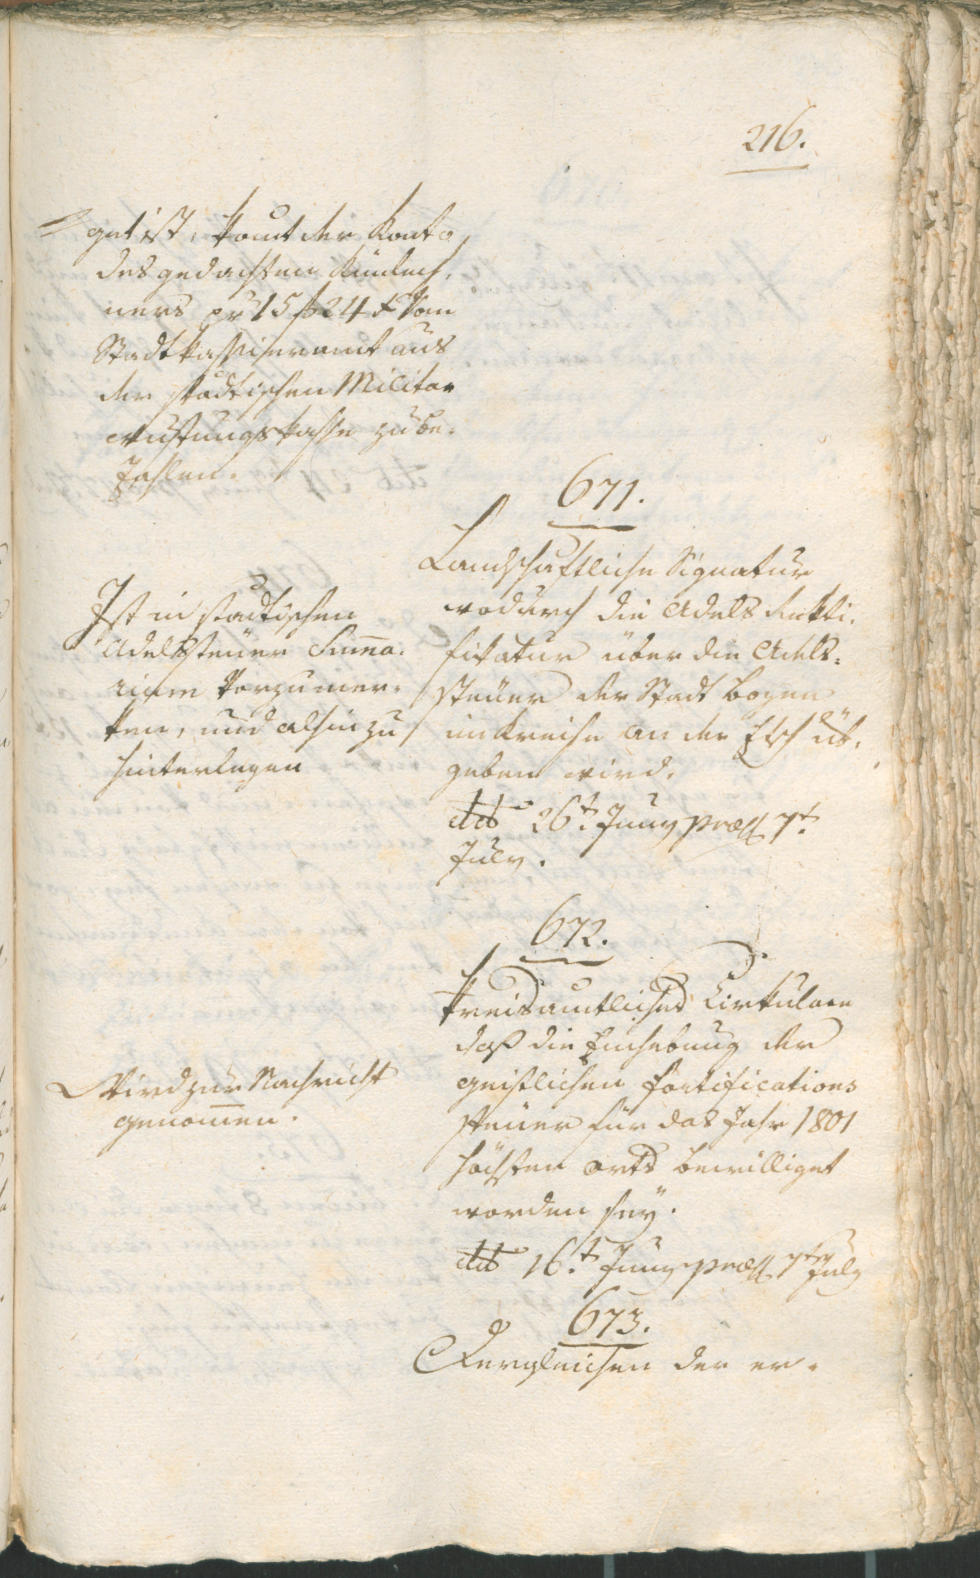 216.
get ist, kommt der Konto
des gedachten Künden¬
ners pr 15 f 24 x vom
Stadtkassieramt aus
der städtischen Militar
rüstungskasse zu be¬
zahlen.
671.
Landschaftliche Signatur
wodurch die Adels Rekti¬
fikatur über die Adels¬
steuer der Stadt Bozen
im Kreise an der Etsch üb¬
geben wird.
ddto 26t. Juny præs 7t.
July.
Ist in städtischen
Adelssteuer Summa¬
rium vorzumer¬
ken, und alhin zu
hinterlegen
672.
Kreisamtliches Cirkulare
daß die Einhebung der
geistlichen Fortifications
steuer für das Jahr 1801
höchsten Orts bewilliget
worden seÿ.
ddto 16t. Juny præs 7ten July
Wird zur Nachricht
genom̅en.
673.
Dergleichen der er¬